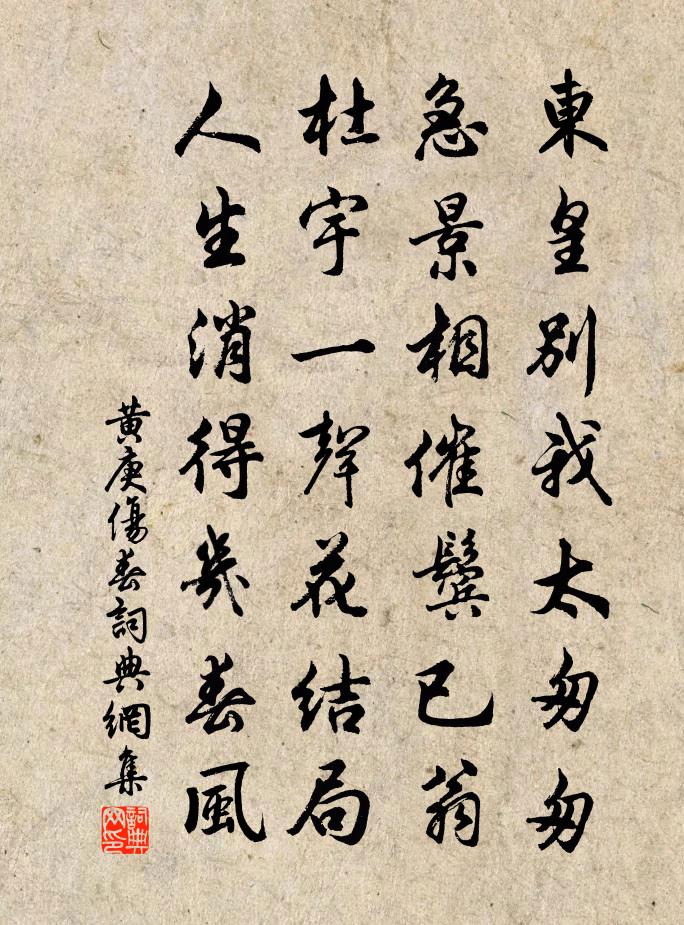 東皇別我太匆匆
急景相催鬓已翁
杜宇一聲花结局
人生消得幾春風
黄庚傷春詞典網集
詞典網印